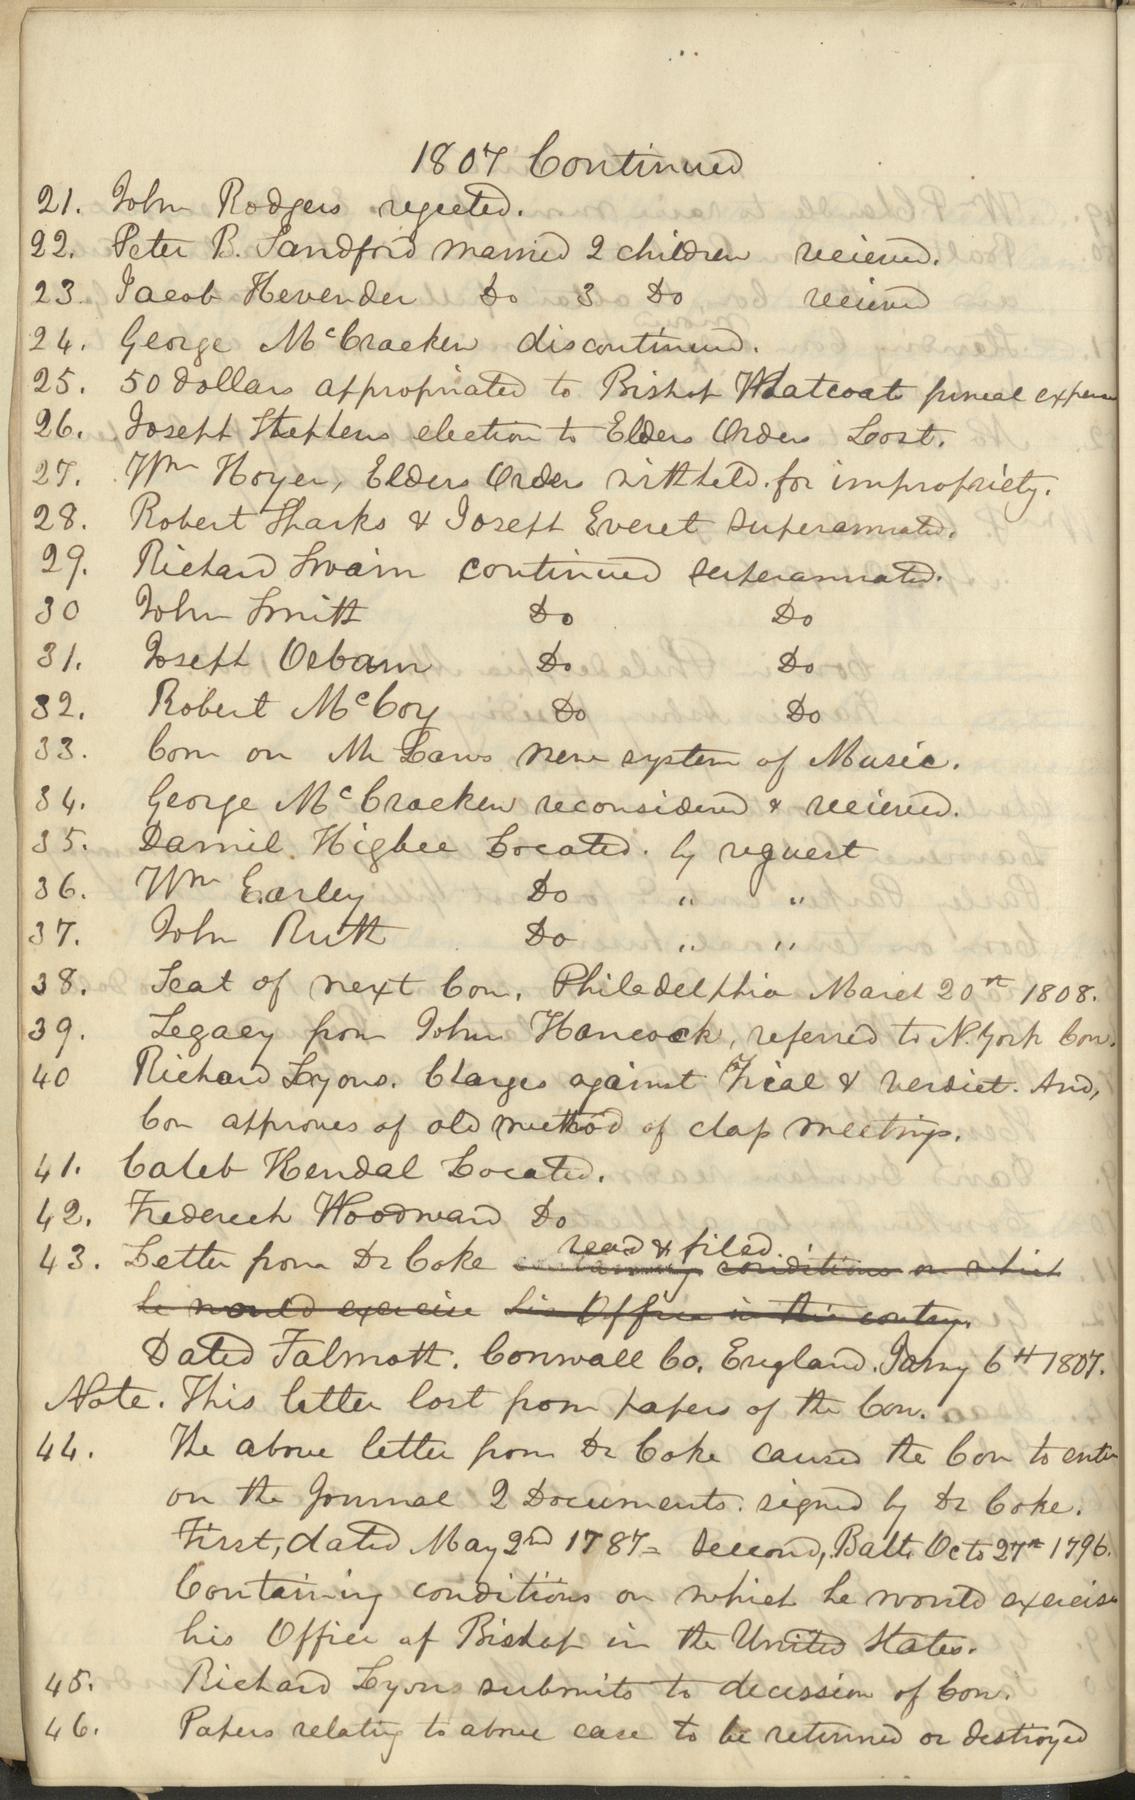 1807 Continued
21. John Rodgers rejected.
22. Peter B. Sandford married 2 children recieved.
23. Jacob Hevender Do 3 Do recieved
24. George McCracken discontinued.
25. 50 dollars appropriated to Bishop Whatcoat funeal expense
26. Joseph Stephens election to Elders Orders Lost.
27. Wm Hoyer, Elders Orders withheld for impropriety.
28. Robert Sparks & Joseph Everet superannuated.
29. Richard Swain continued superannuated.
30 John Smith Do Do
31. Joseph Osbarn Do Do
32. Robert McCoy Do Do
33. Com on Mr Laws new system of Music.
34. George McCracken reconsidered & recieved.
35. Daniel Higbee Located. by request
36. Wm Earley Do " "
37. John Ruth Do " "
38. Seat of next Con. Philadelphia March 20th 1808.
39. Legacy from John Hancock, referred to N. York Con.
40 Richard Lyons. Charges against Trial & verdict. And,
Con approves of old method of class meetings.
41. Caleb Kendal Located.
42. Frederech Woodward Do
read & filed.
43. Letter from Dr Coke containing conditions on which
he would exercise his Office in this contry.
Dated Falmoth. Cornwall Co. England. Jarny 6th 1807.
Note. This letter lost from papers of the Con.
44. The above letter from Dr Coke caused the Con to enter
on the Journal 2 Documents. signed by Dr Coke.
First, dated May 2nd 1787 = Second, Balt. Octo 27th 1796.
Containing conditions on which he would exercise
his Office of Bishop in the United States.
45. Richard Lyons submits to decission of Con.
46. Papers relating to above case to be returned or destroyed